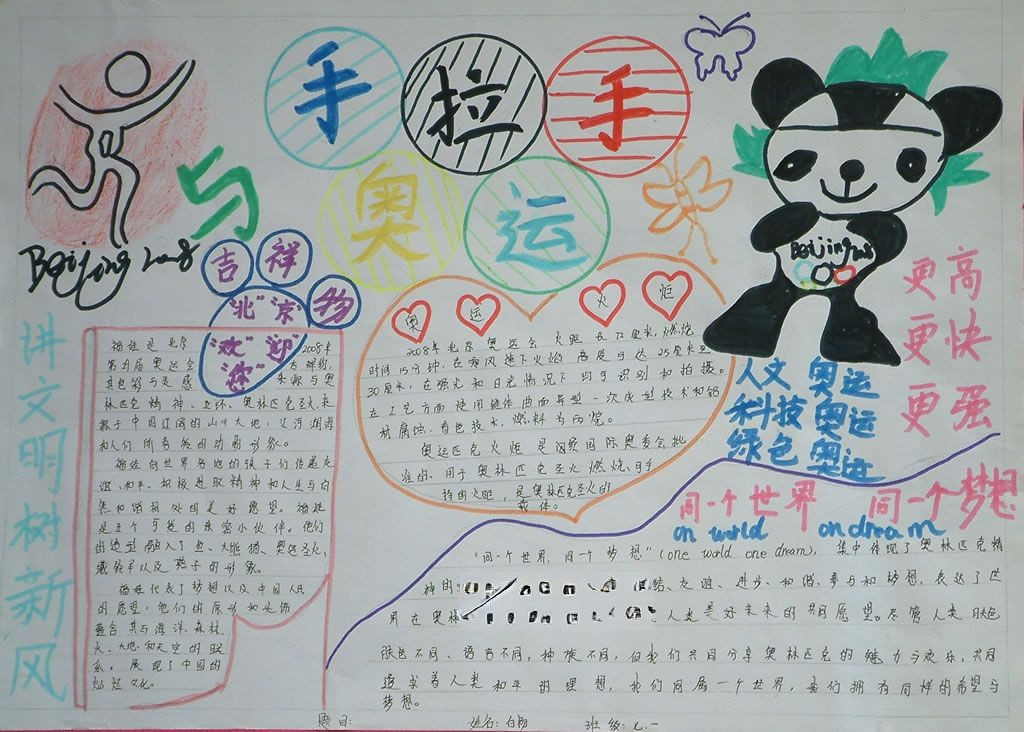 手拉手
与
奥运
Beijing 2008
吉祥物
"北""京"
"欢""迎"
"你"
讲文明树新风
福娃是北京 2008年
第29届奥运会 吉祥物,
其色彩与灵感 来源与奥
林匹克精神、五环、奥林匹克圣火,来
源于中国辽阔的山川大地、江河湖海
和人们所喜爱的动物形象。
福娃向世界各地的孩子们传递友
谊、和平、积极进取精神和人生与自
然和谐相处的美好愿望。福娃
是五个可爱的亲密小伙伴。他们
的造型融入了鱼、大熊猫、奥运圣火、
藏羚羊以及燕子的形象。
福娃代表了梦想以及中国人民
的愿望,他们的原形和头饰
蕴含其与海洋、森林、
火、大地和天空的联
系。展现了中国的
灿烂文化。
奥运火炬
2008年北京奥运会火炬长72厘米,燃烧
时间15分钟,在零风速下火焰高度可达25厘米至
30厘米,在强光和日光情况下均可识别和拍摄。
在工艺方面使用锥体曲面异型一次成型技术和铝
材腐蚀、着色技术,燃料为丙烷。
奥运匹克火炬是国际奥委会批
准的、用于奥林匹克圣火燃烧、可手
持的火炬,是奥林匹克圣火的
载体。
Beijing 2008
更高
更快
更强
人文 奥运
科技 奥运
绿色 奥运
同一个世界 同一个梦想
on world on dream
"同一个世界,同一个梦想"(one world one dream),集中体现了奥林匹克精
神的 结、友谊、进步、和谐、参与和梦想、表达了世
界在奥林 人类美好未来的共同愿望。尽管人类肤色
肤色不同、语言不同,种族不同,但我们共同分享奥林匹克的魅力与欢乐,共同
追求着人类和平的理想,我们同属一个世界,我们拥有同样的希望与
梦想。
题目: 姓名: 班级:七.一